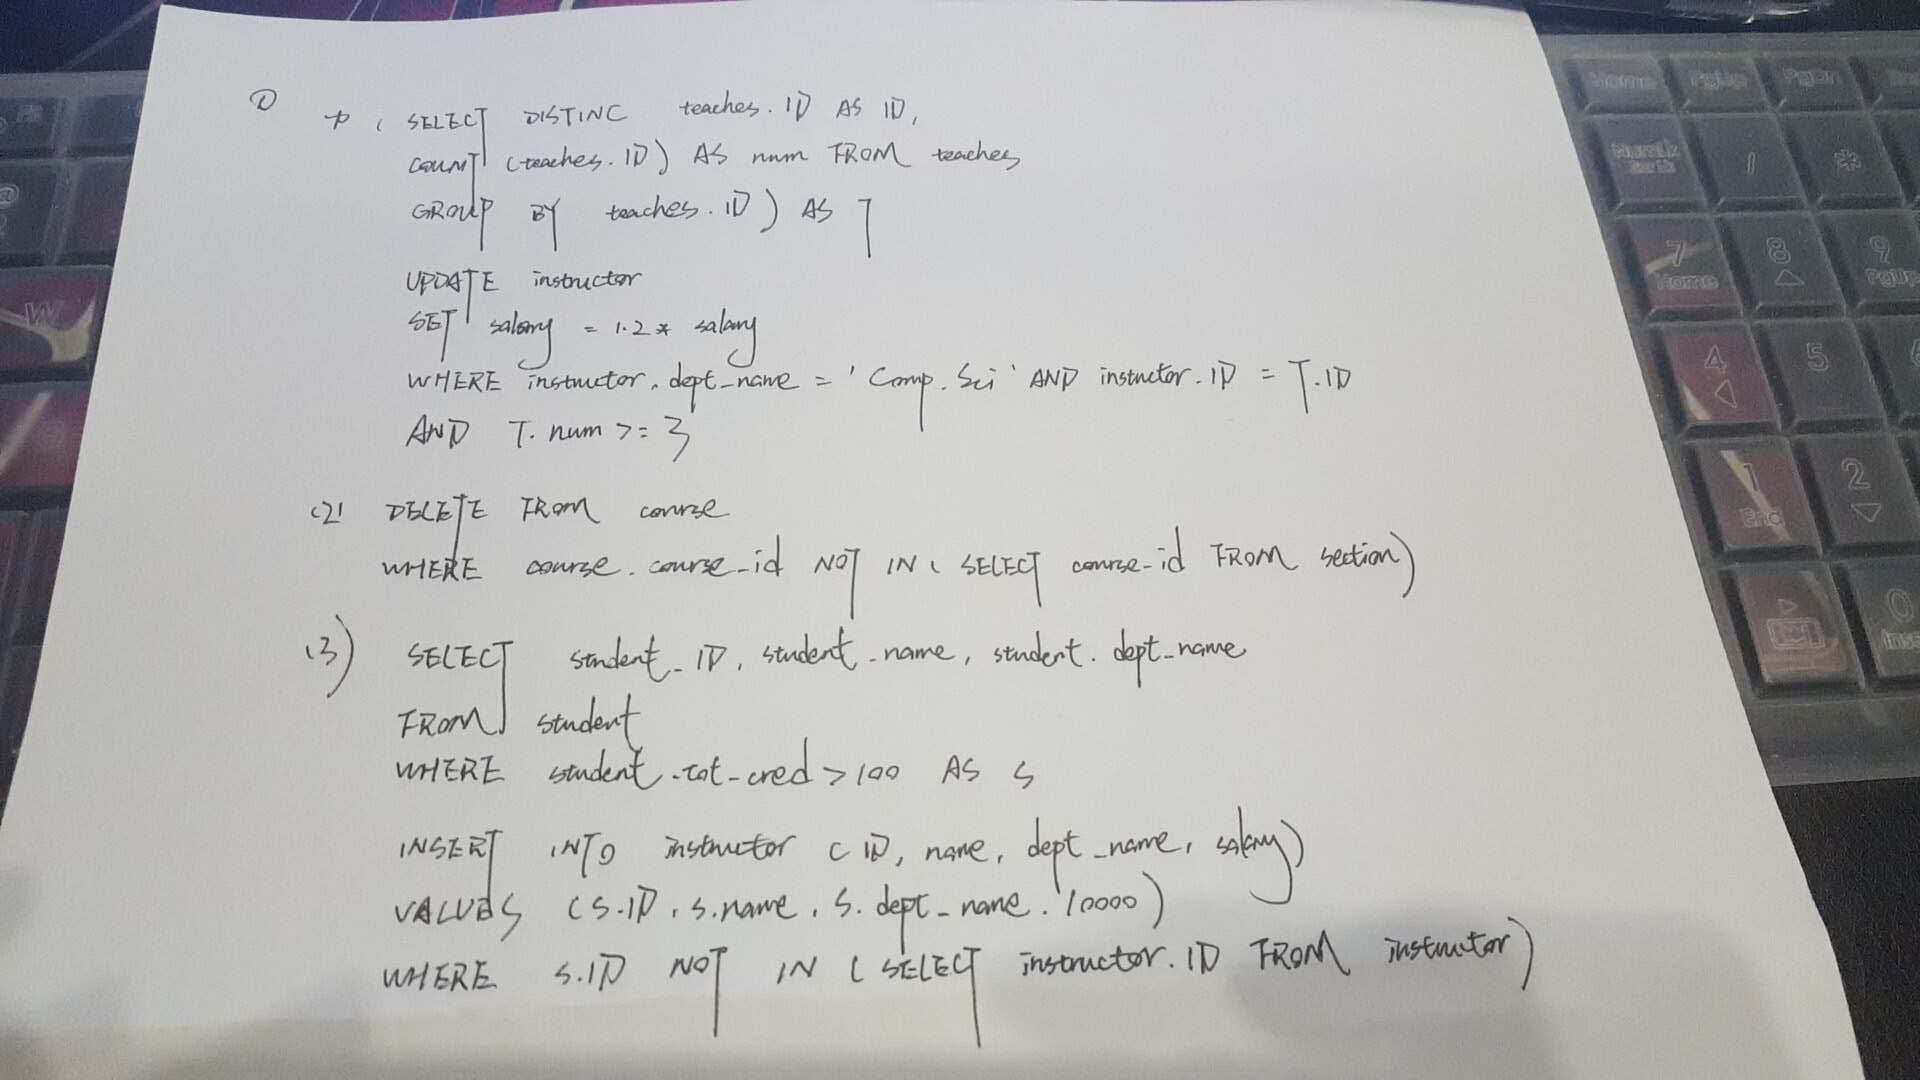 ①
(SELECT DISTINC teaches.ID AS ID,
COUNT (teaches.ID) AS num FROM teaches
GROUP BY teaches.ID) AS T
UPDATE instructor
SET salary = 1.2 * salary
WHERE instructor.dept_name = 'Comp.Sci' AND instructor.ID = T.ID
AND T.num >= 3
(2) DELETE FROM course
WHERE course.course_id NOT IN (SELECT course_id FROM section)
(3) SELECT student_ID, student_name, student.dept_name
FROM student
WHERE student.tot_cred > 100 AS S
INSERT INTO instructor (ID, name, dept_name, salary)
VALUES (S.ID, S.name, S.dept_name, 10000)
WHERE S.ID NOT IN (SELECT instructor.ID FROM instructor)
Home
PgUp
PgDn
/
*
7
Home
8
9
PgUp
4
5
1
End
2
0
W